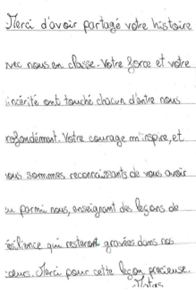 Merci d'avoir partagé votre histoire
avec nous en classe. Votre force et votre
sincérité ont touché chacun d'entre nous
profondément. Votre courage m'inspire, et
nous sommes reconnaissants de vous avoir
eu parmi nous, enseignant de leçons de
résilience qui resteront gravées dans nos
cœurs. Merci pour cette leçon précieuse.